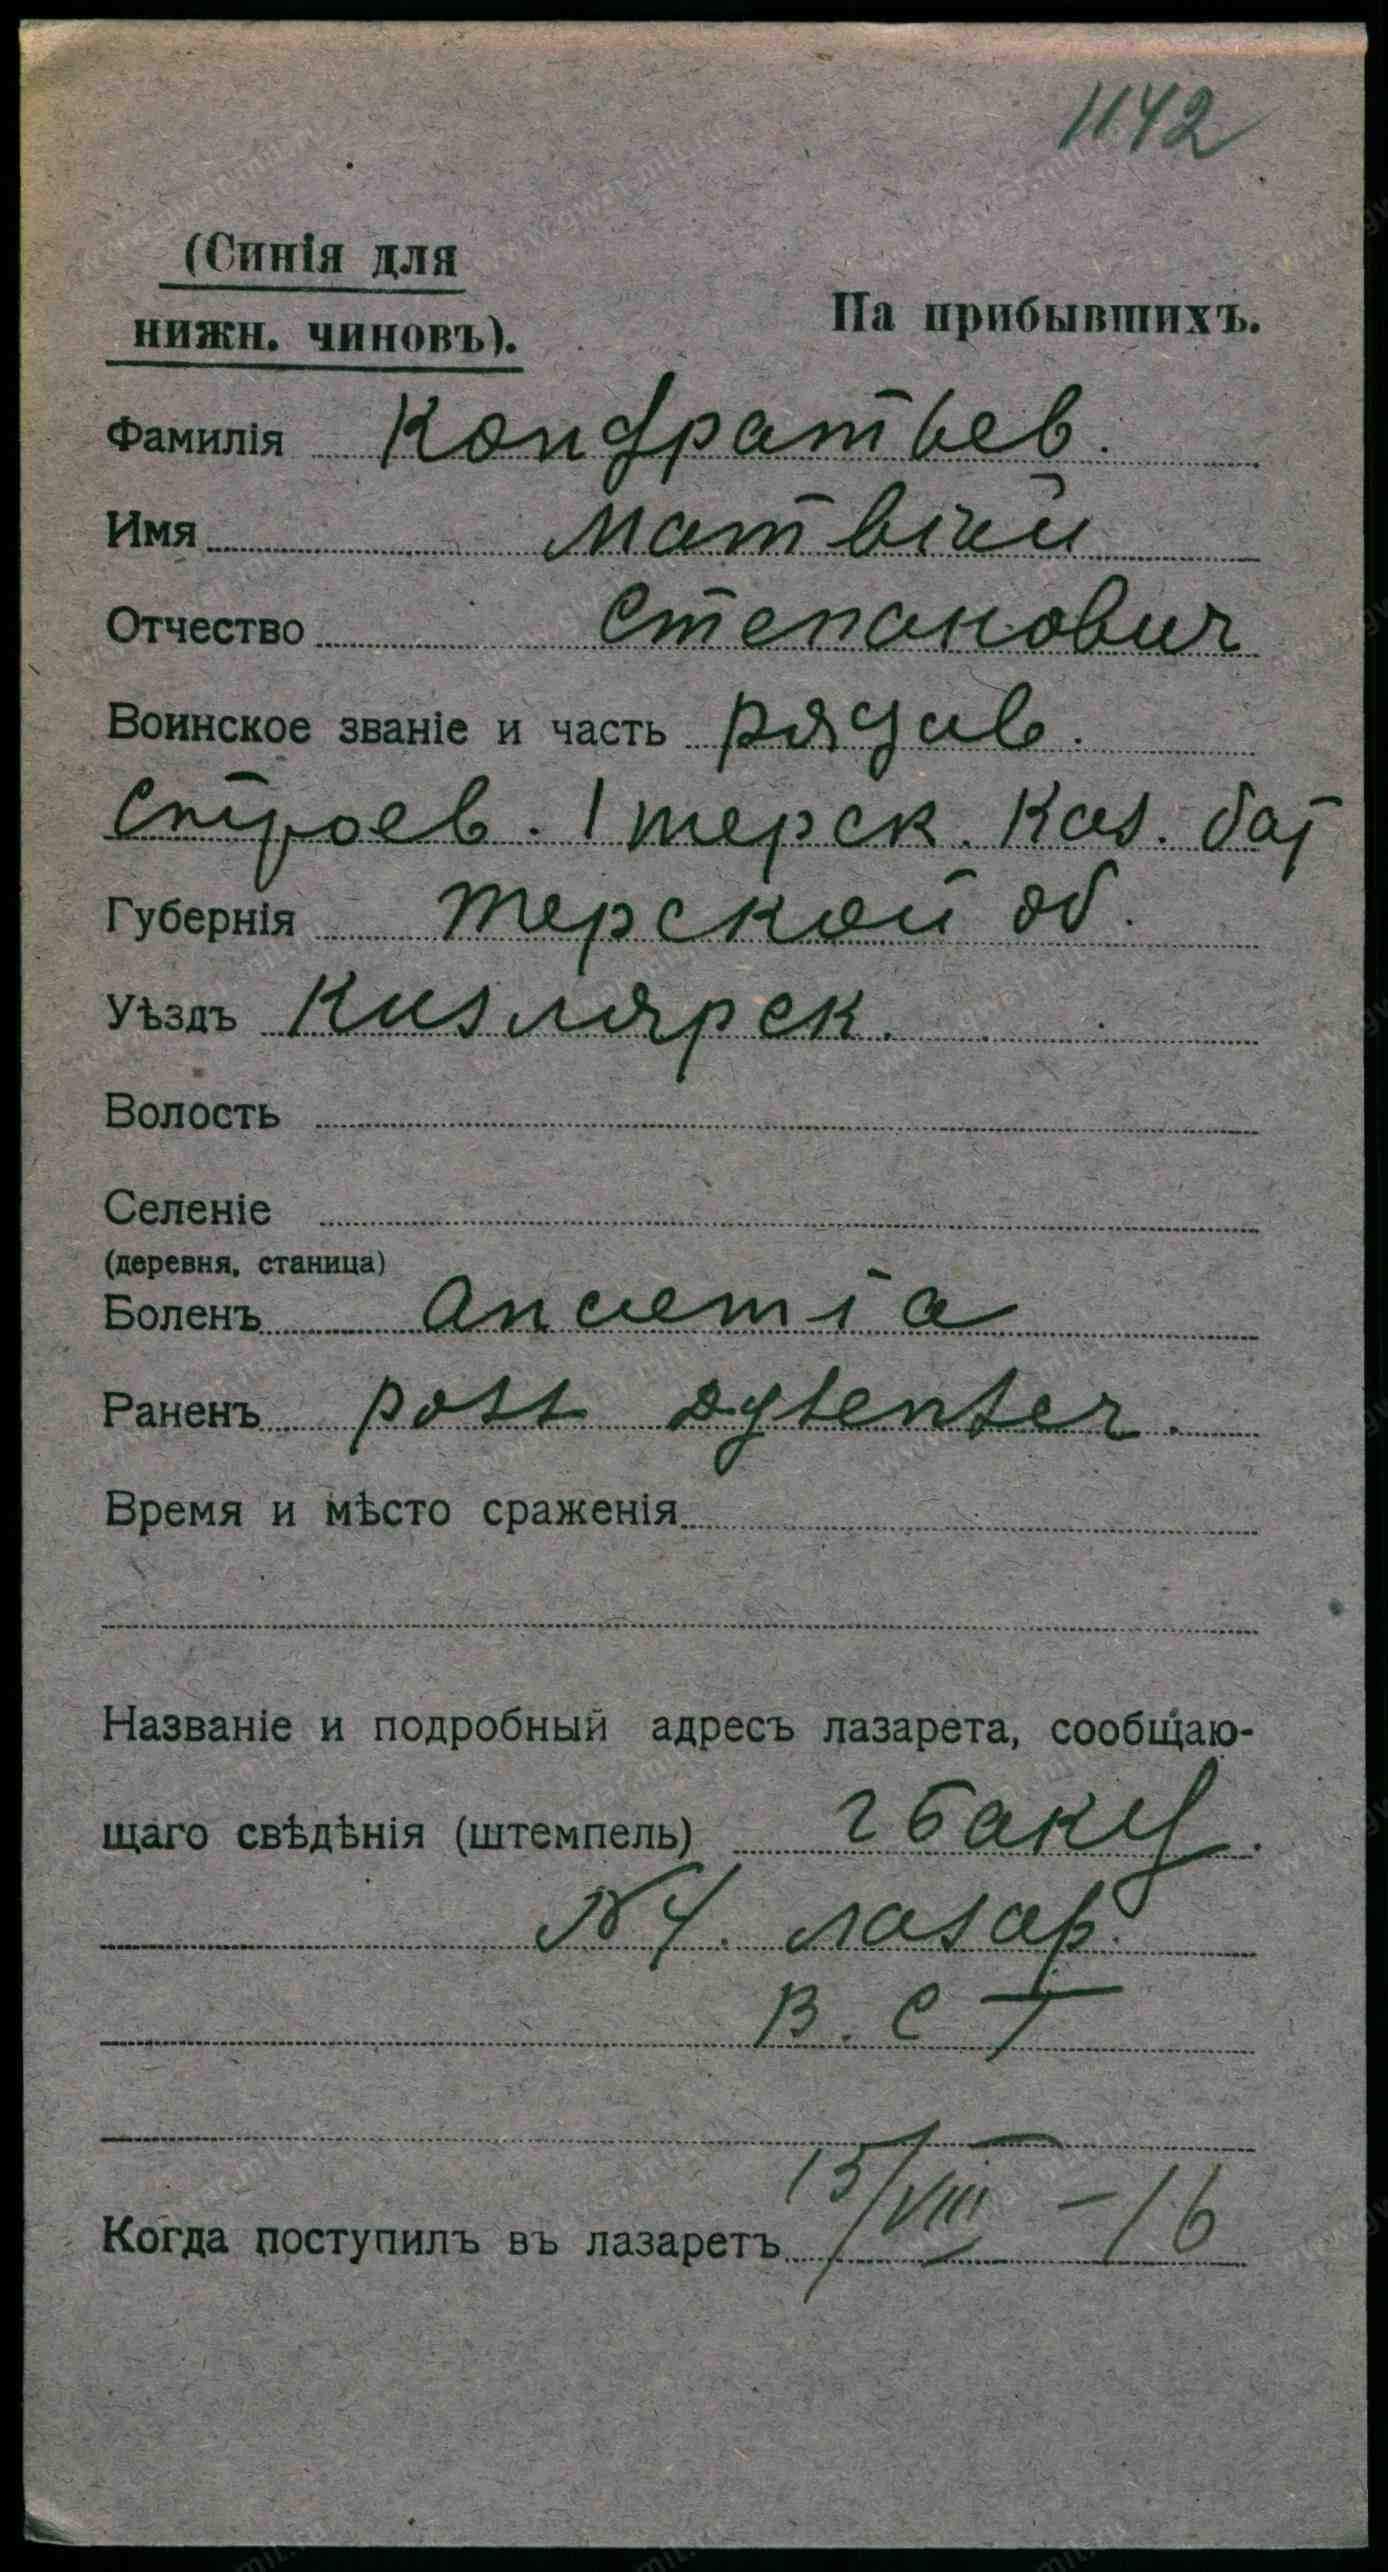 1142
(Синія для
нижн. чиновъ).
На прибывшихъ.
Фамилія Кондратьев.
Имя Матвѣй
Отчество Степанович
Воинское званіе и часть рядов.
строев. 1 терск. каз. бат
Губернія Терской об.
Уѣздъ Кизлярск.
Волость
Селеніе
(деревня, станица)
Боленъ Anaemia
Раненъ post dysenter.
Время и мѣсто сраженія
Названіе и подробный адресъ лазарета, сообщаю-
щаго свѣдѣнія (штемпель) г Баку.
№ 4. лазар.
В. С Г
Когда поступилъ въ лазаретъ 15/VIII - 16